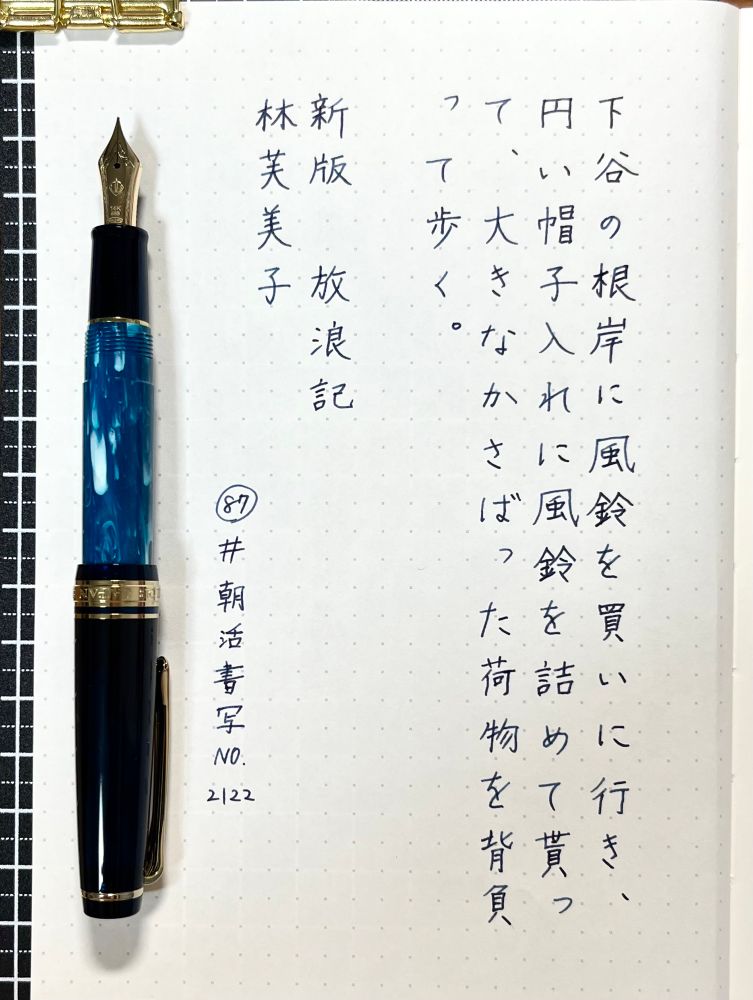 下谷の根岸に風鈴を買いに行き、
円い帽子入れに風鈴を詰めて貰っ
て、大きなかさばった荷物を背負
って歩く。
新版 放浪記
林芙美子
87
#朝活書写
NO.
2122
14K
585